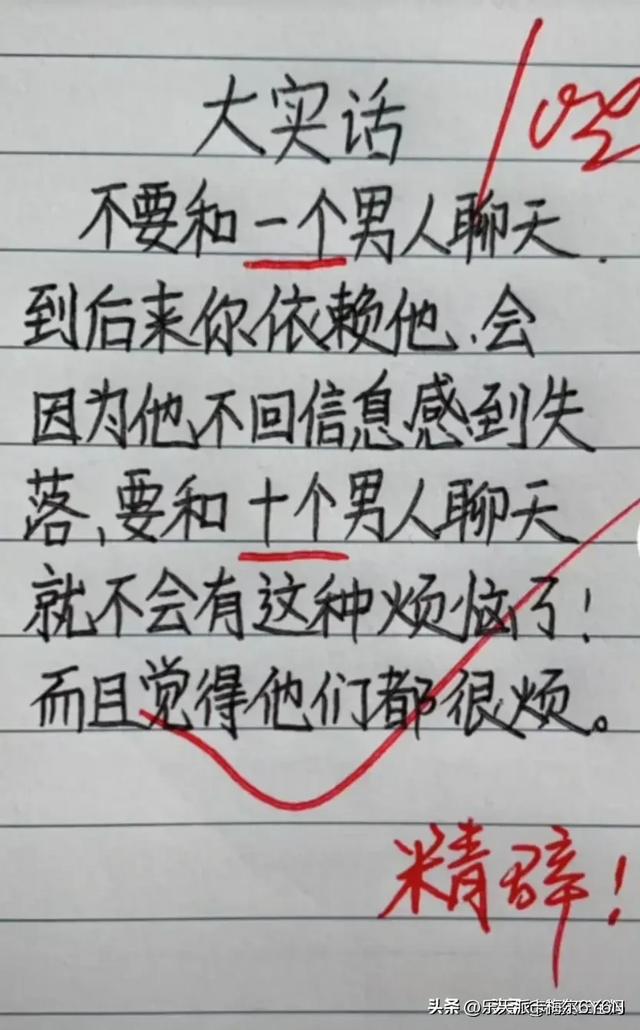 大实话
不要和一个男人聊天.
到后来你依赖他、会
因为他不回信息感到失
落、要和十个男人聊天
就不会有这种烦恼了!
而且觉得他们都很烦。
精辟!